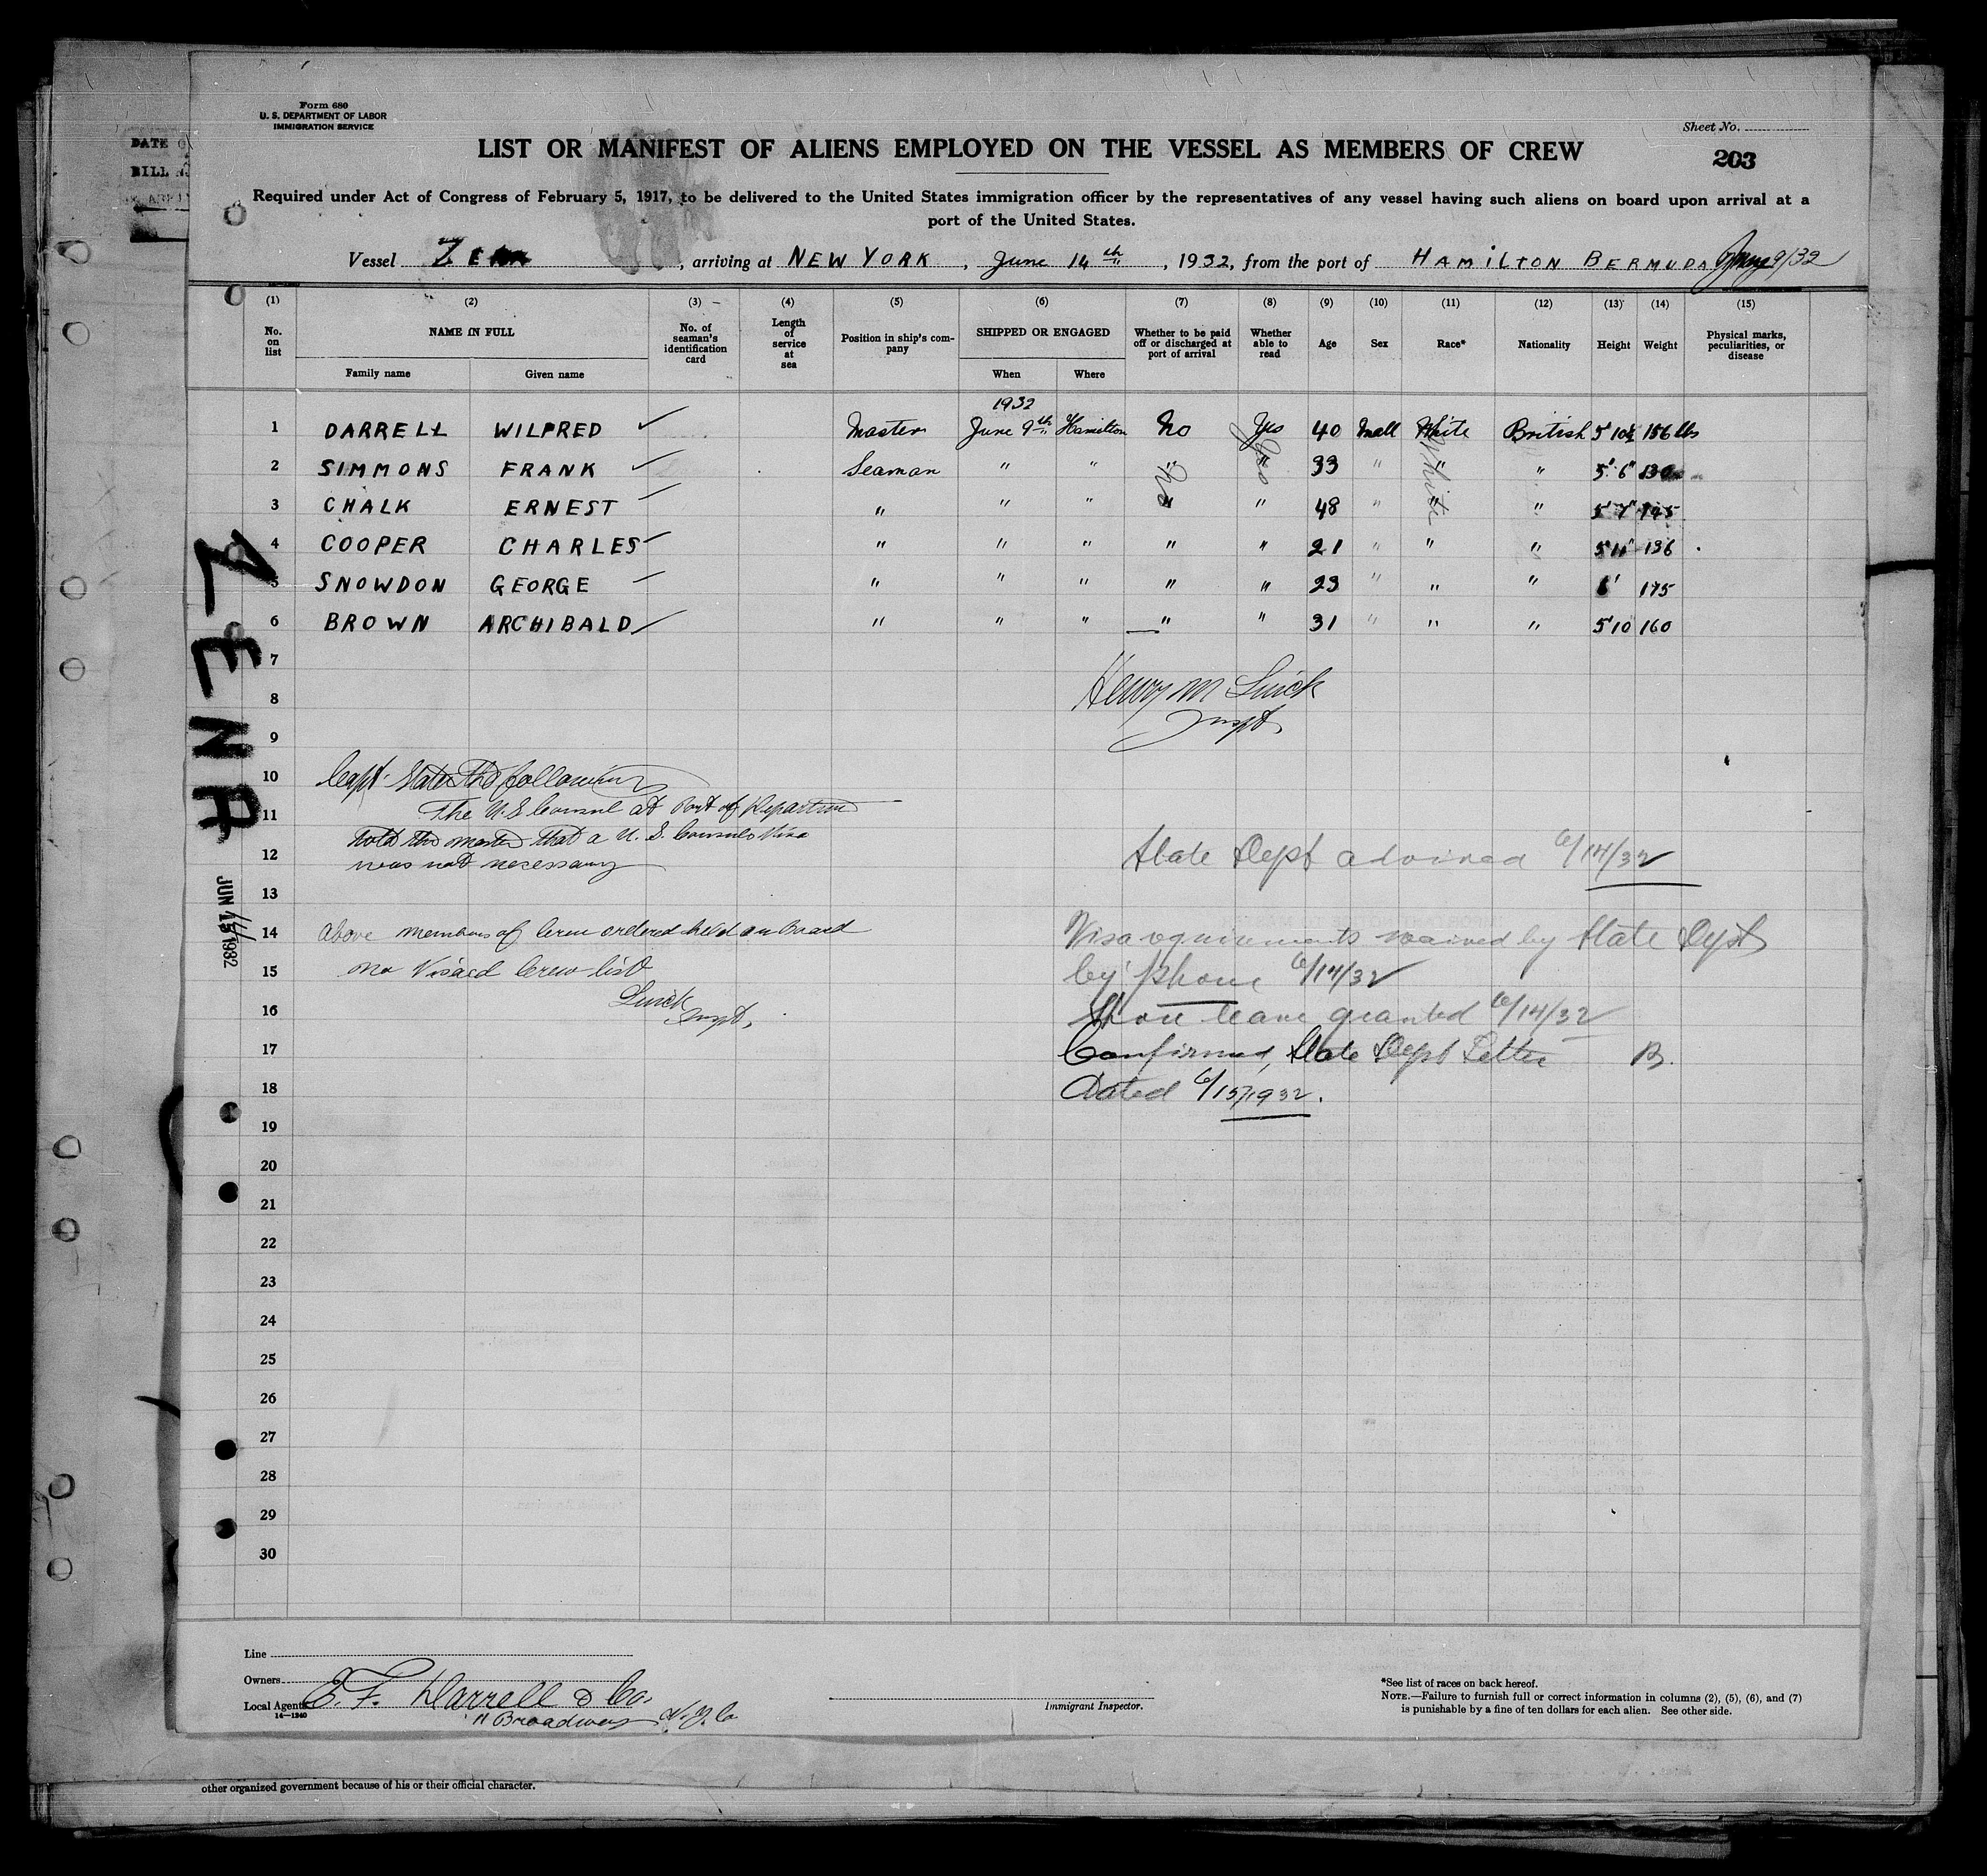 Form 680
U. S. DEPARTMENT OF LABOR
IMMIGRATION SERVICE
DATE O
BILL
Sheet No.
203
LIST OR MANIFEST OF ALIENS EMPLOYED ON THE VESSEL AS MEMBERS OF CREW
Required under Act of Congress of February 5, 1917, to be delivered to the United States immigration officer by the representatives of any vessel having such aliens on board upon arrival at a
port of the United States.
Vessel , arriving at NEW YORK , June 14th , 1932, from the port of HAMILTON BERMUDA June 9/32
(1) (2) (3) (4) (5) (6) (7) (8) (9) (10) (11) (12) (13) (14) (15)
No. on list NAME IN FULL No. of seaman's identification card Length of service at sea Position in ship's company SHIPPED OR ENGAGED Whether to be paid off or discharged at port of arrival Whether able to read Age Sex Race* Nationality Height Weight Physical marks, peculiarities, or disease
Family name Given name When Where
1932
1 DARRELL WILFRED ✓ Master June 9th Hamilton No Yes 40 Mall White British 5' 10½ 156 lbs
2 SIMMONS FRANK ✓ Seaman " " " " 33 " " " 5' 6" 130
No Yes White
3 CHALK ERNEST " " " " " 48 " " " 5' 7" 145
4 COOPER CHARLES " " " " " 21 " " " 5'11" 136
5 SNOWDON GEORGE " " " " " 23 " " " 6' 175
6 BROWN ARCHIBALD " " " " " 31 " " " 5'10 160
7
8 Henry M
Inspt.
9
ZENA
JUN 1932
10 Capt. States the following
11 The U.S Consul at Port of Departure
told the master that a U. S. Consuls Visa
12 was not necessary
State Dept advised 6/14/32
13
14 above members of Crew ordered held on Board
Visa requirements waived by State Dept
15 no Visaed Crew list
by phone 6/14/32
16 Inspt.
Shore leave granted 6/14/32
17 Confirmed, State Dept Letter B.
18 Dated 6/15/1932.
19
20
21
22
23
24
25
26
27
28
29
30
Line
Owners
Local Agents E. F. Darrell & Co.
14—1240
11 Broadway N.Y.C
Immigrant Inspector.
*See list of races on back hereof.
NOTE.—Failure to furnish full or correct information in columns (2), (5), (6), and (7)
is punishable by a fine of ten dollars for each alien. See other side.
other organized government because of his or their official character.